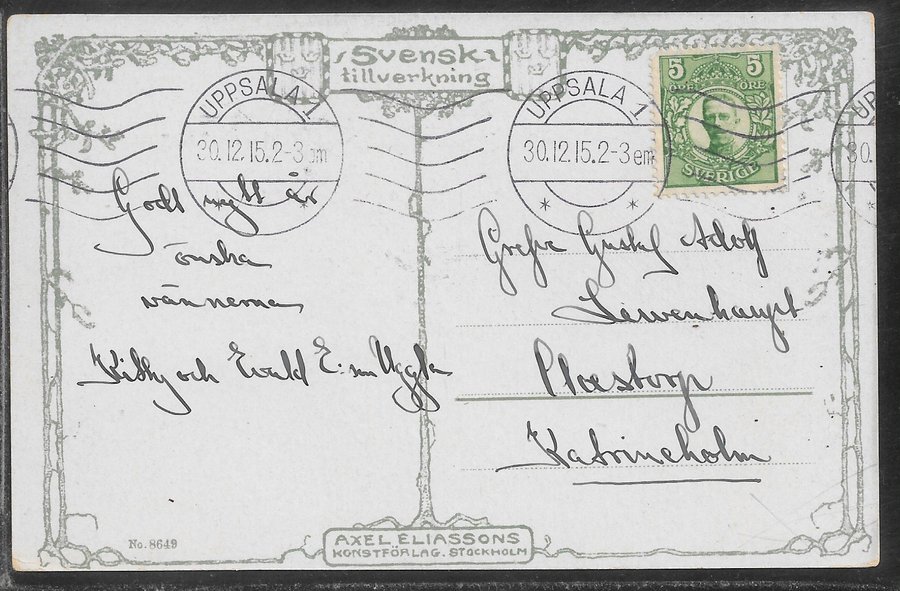 Svensk
tillverkning
UPPSALA 1
30.12.15.2-3 em
UPPSALA 1
30.12.15.2-3 em
UP
30.
5 5
ÖRE ÖRE
SVERIGE
Godt nytt år
önska
vännerna
Kitty och Ewald E:son Uggla
Grefve Gustaf Adolf
Lewenhaupt
Claestorp
Katrineholm
No. 8649
AXEL ELIASSONS
KONSTFÖRLAG. STOCKHOLM